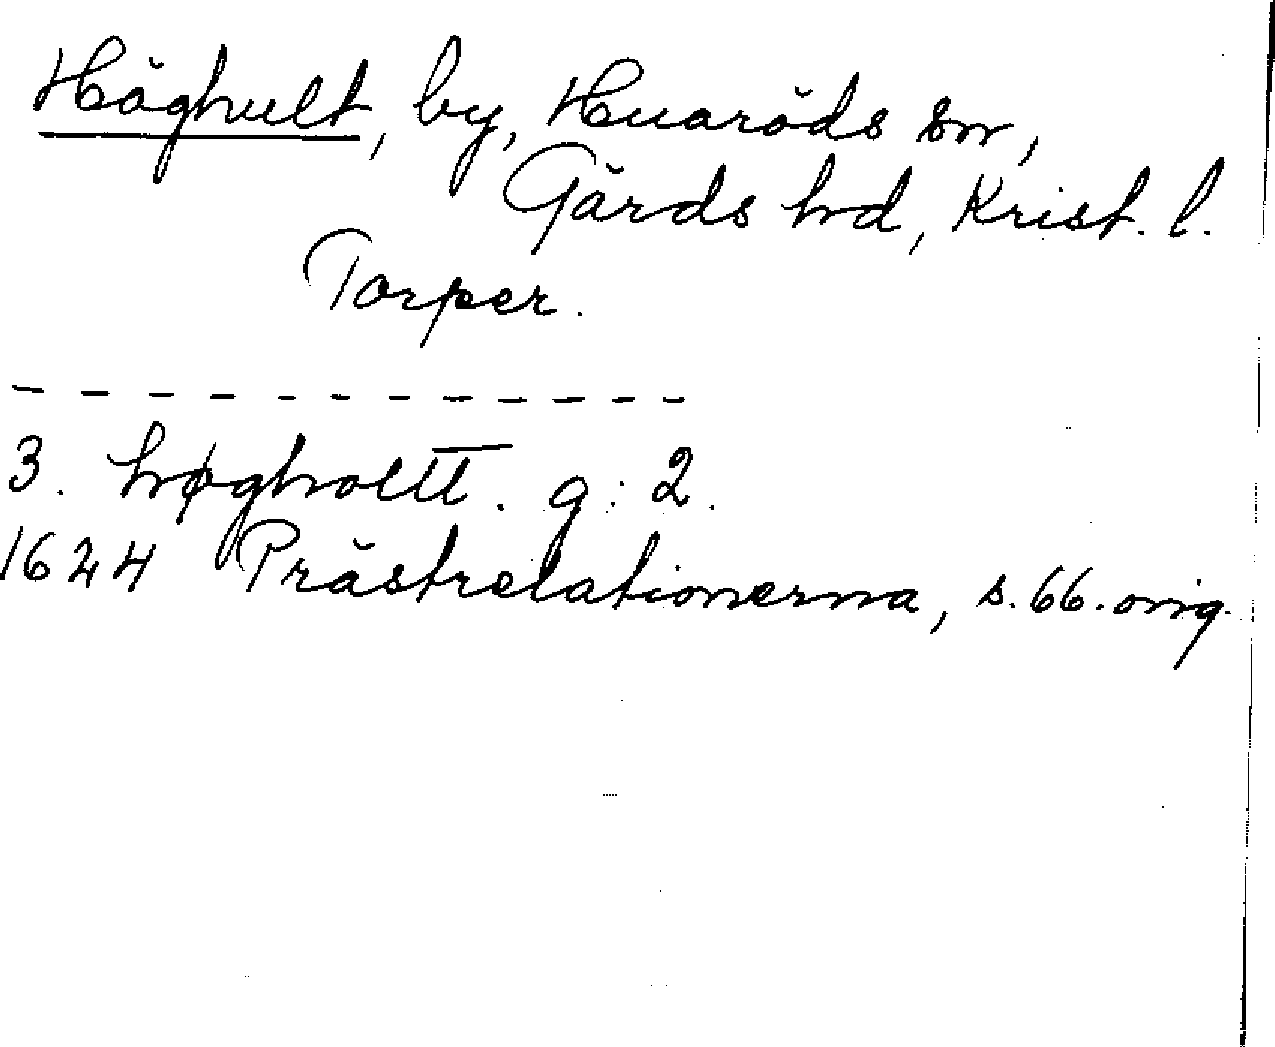 Höghult, by, Huaröds sn,
Gärds hd, Krist. l.
Torper.
- - - - - - - - - - - - -
3. høgholtt. g: 2.
1624 Prästrelationerna, s. 66. orig.